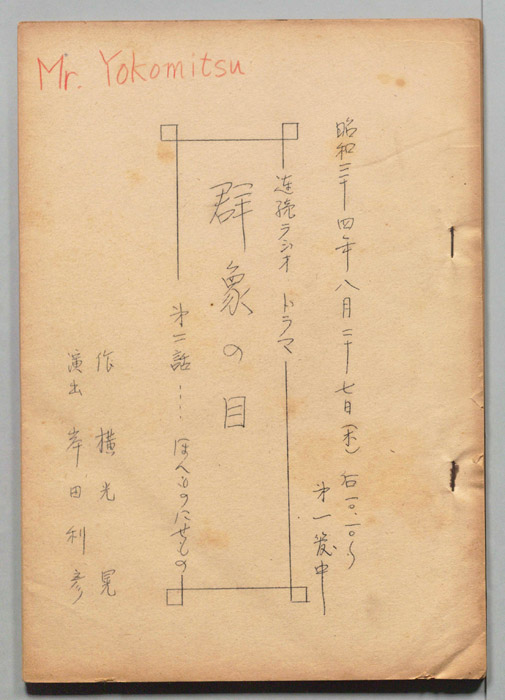 Mr. Yokomitsu
昭和三十四年八月二十七日(木) 后一〇.一〇〜
才一發中
連続ラジオ ドラマ
群象の目
才二話……ほんものにせもの
作 横光 晃
演出 岸田利彦